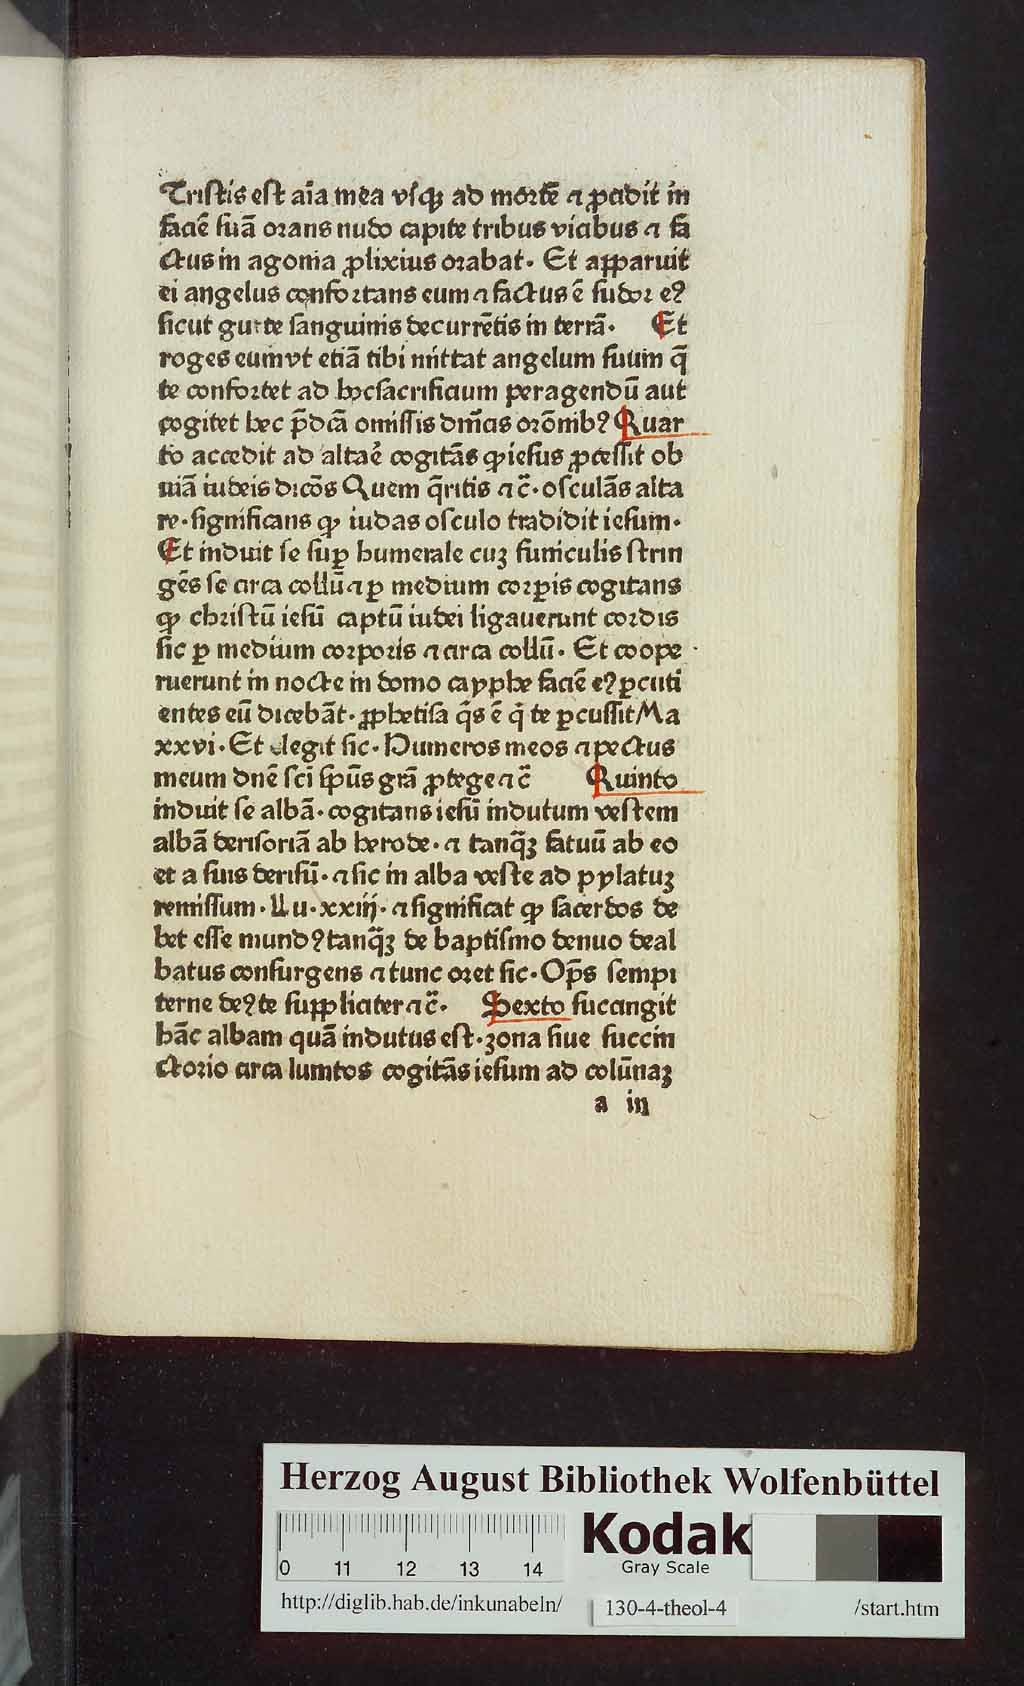 Tristis est aīa mea vſqꝫ ad mortē ⁊ ꝓcidit in
faciē ſuā orans nudo capite tribus vicibus ⁊ fa
ctus in agonia ꝓlixius orabat. Et apparuit
ei angelus confortans eum ⁊ factus ē ſudor eꝰ
ſicut gutte ſanguinis decurrētis in terrā. Et
roges eum vt etiā tibi mittat angelum ſuum q̄
te confortet ad hoc ſacrificium peragendū aut
cogitet hec p̄dcā omiſſis dm̄as orōnibꝰ Quar
to accedit ad altaē cogitās ꝙ ieſus ꝓceſſit ob
uiā iudeis dicōs Quem q̄ritis ⁊ c̄. oſculās alta
re. ſignificans ꝙ iudas oſculo tradidit ieſum.
Et induit ſe ſuꝑ humerale cuꝫ funiculis ſtrin
gēs ſe circa collū ⁊ ꝑ medium corꝑis cogitans
ꝙ chriſtū ieſū captū iudei ligauerunt cordis
ſic ꝑ medium corporis ⁊ circa collū. Et coope
ruerunt in nocte in domo cayphe faciē eꝰ ꝑcuti
entes eū dicebāt. ꝓphetiſa q̄s ē q̄ te ꝑcuſſit Ma
xxvi. Et legit ſic. Humeros meos ⁊ pectus
meum dnē ſci ſpūs grā ꝓtege ⁊ c̄ Quinto
induit ſe albā. cogitans ieſū indutum veſtem
albā deriſoriā ab herode. ⁊ tanq̄ꝫ fatuū ab eo
et a ſuis deriſū. ⁊ ſic in alba veſte ad pylatuꝫ
remiſſum. Lu. xxiij. ⁊ ſignificat ꝙ ſacerdos de
bet eſſe mundꝰ tanq̄ꝫ de baptiſmo denuo deal
batus conſurgens ⁊ tunc oret ſic. Op̄s ſempi
terne deꝰ te ſuppliciter ⁊ c̄. Sexto ſuccingit
hāc albam quā indutus eſt. zona ſiue ſuccin
ctorio circa lumbos cogitās ieſum ad colūnaꝫ
a iii
Herzog August Bibliothek Wolfenbüttel
0 11 12 13 14
Kodak
Gray Scale
http://diglib.hab.de/inkunabeln/ 130-4-theol-4 /start.htm